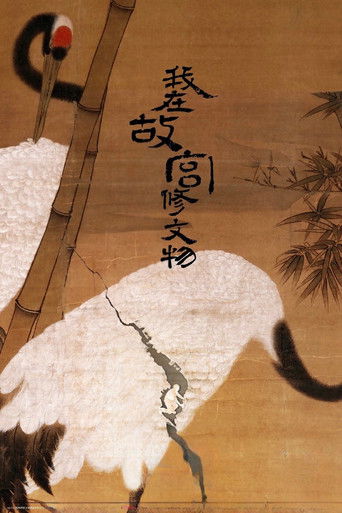 我在故宫修文物